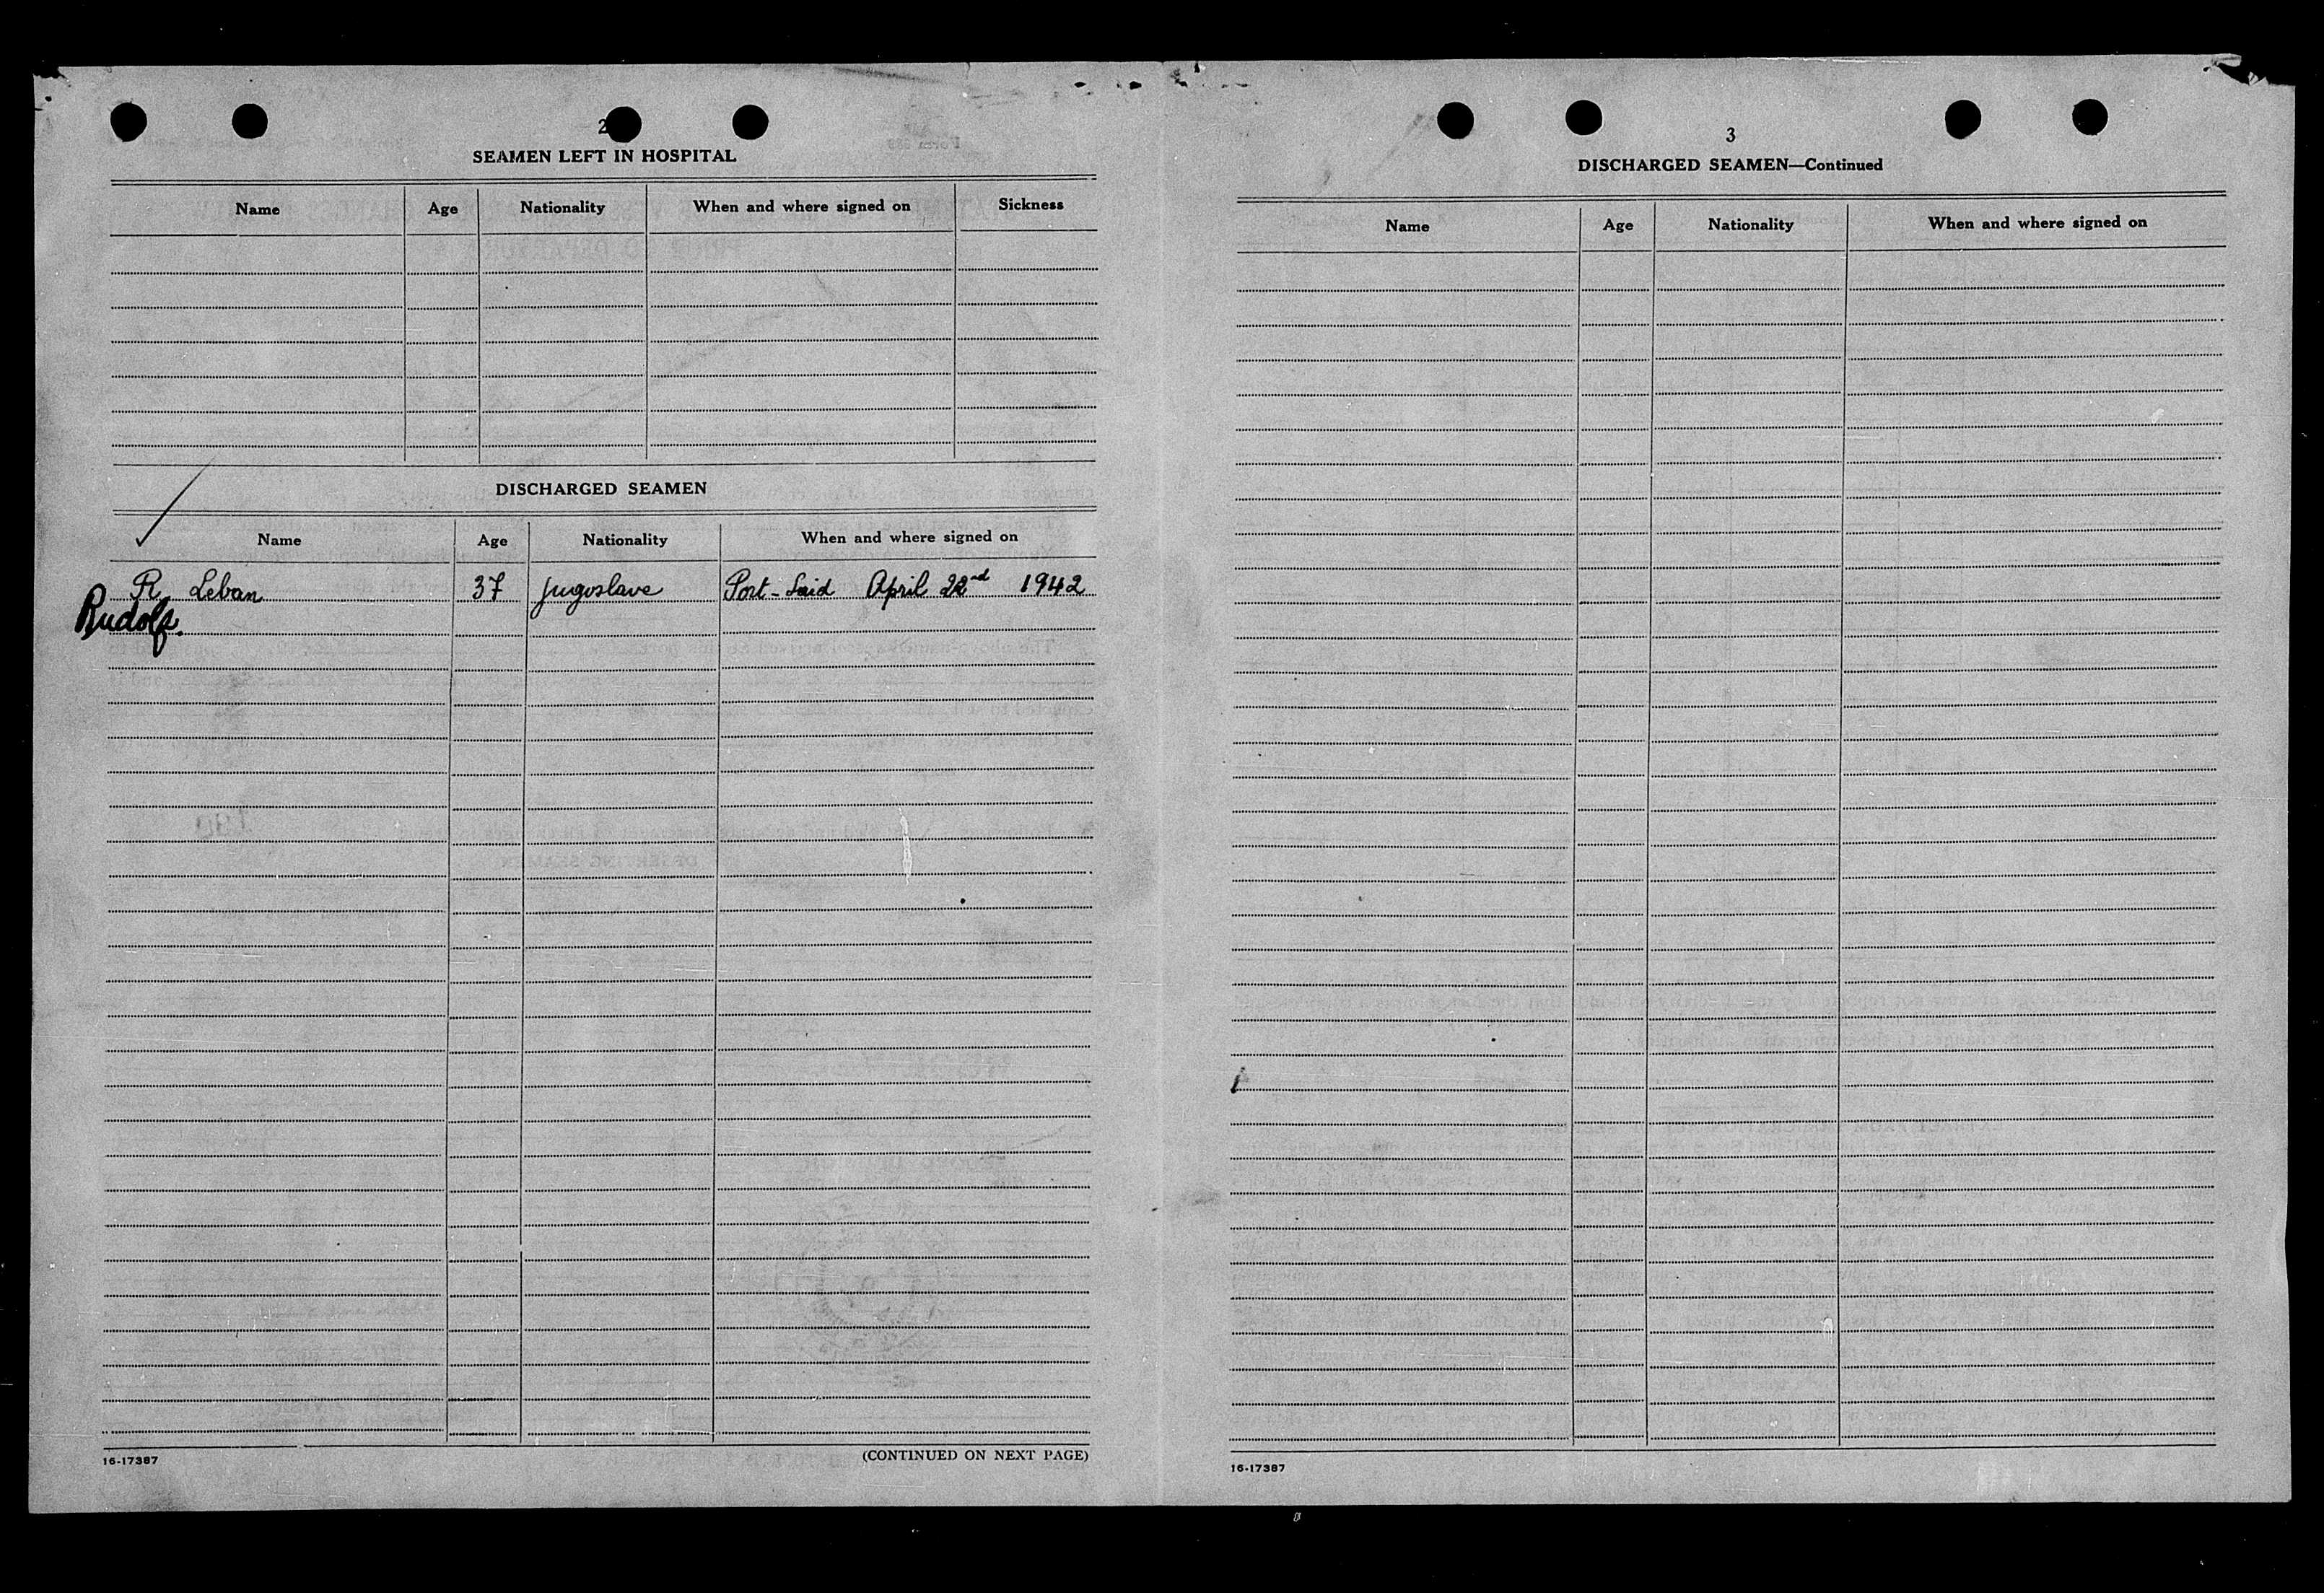 2
SEAMEN LEFT IN HOSPITAL
Name Age Nationality When and where signed on Sickness
DISCHARGED SEAMEN
Name Age Nationality When and where signed on
R. Leban 37 Jugoslave Port-Said April 22nd 1942
Rudolf.
(CONTINUED ON NEXT PAGE)
16-17387
3
DISCHARGED SEAMEN—Continued
Name Age Nationality When and where signed on
16-17387